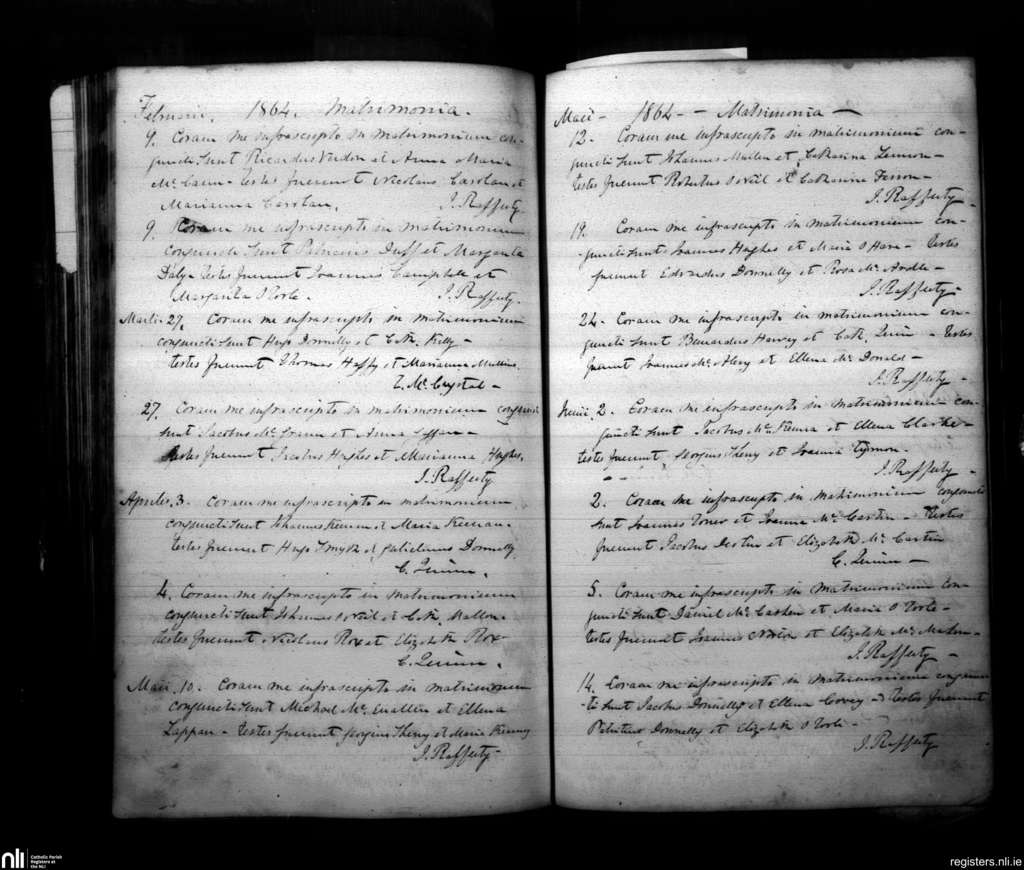 Februarii. 1864. Matrimonia.
9. Coram me infrascripto in matrimonium con-
juncti sunt Ricardus Verdon et Anna Maria
Mc Cann - testes fuerunt Nicolaus Carolan et
Marianna Carolan. J. Rafferty.
9. Coram me infrascripto in matrimonium
conjuncti sunt Patricius Duff et Margarita
Daly - testes fuerunt Joannes Campbell et
Margarita O Toole. J. Rafferty.
Martii 27. Coram me infrascripto in matrimonium
conjuncti sunt Hugo Donnelly et Cath. Kelly -
testes fuerunt Thomas et Marianna Mullins.
Mc Crystal -
27. Coram me infrascripto in matrimonium conjuncti
sunt Jacobus Mc et Anna
testes fuerunt Jacobus Hughes et Marianna Hughes.
J. Rafferty
Aprilis. 3. Coram me infrascripto in matrimonium
conjuncti sunt Johannes Keenan et Maria Keenan.
testes fuerunt Hugo Smyth et Gulielmus Donnelly.
C. Quinn.
4. Coram me infrascripto in matrimonium
conjuncti sunt Johannes O Neil et Cath. Mallon.
testes fuerunt Nicolaus Rox et Elizabeth Rox
C. Quinn.
Maii. 10. Coram me infrascripto in matrimonium
conjuncti sunt Michael Mc et Ellena
Lappan - testes fuerunt Georgius et Maria
J. Rafferty -
Maii - 1864 - Matrimonia -
12. Coram me infrascripto in matrimonium con-
juncti sunt Johannes Mullen et Catharina Lennon -
testes fuerunt O Neil et Catharina
J. Rafferty -
19. Coram me infrascripto in matrimonium con-
juncti sunt Joannes Hughes et Maria O Hare - testes
fuerunt Edvardus Donnelly et Rosa Mc Ardle -
J. Rafferty -
24. Coram me infrascripto in matrimonium con-
juncti sunt Bernardus Harvey et Cath. Quinn - testes
fuerunt Joannes Mc et Ellena Mc Donald -
J. Rafferty -
Junii. 2. Coram me infrascripto in matrimonium con-
juncti sunt Jacobus Mc Kenna et Ellena Clarke -
testes fuerunt Georgius et Joanna
J. Rafferty -
2. Coram me infrascripto in matrimonium conjuncti
sunt Joannes et Joanna Mc Cartin - testes
fuerunt Jacobus et Elizabeth Mc Cartin
C. Quinn -
5. Coram me infrascripto in matrimonium con-
juncti sunt Daniel Mc et Maria O Toole -
testes fuerunt Joannes et Elizabeth Mc Mahon -
J. Rafferty -
14. Coram me infrascripto in matrimonium conjunc-
-ti sunt Jacobus Donnelly et Ellena - testes fuerunt
Donnelly et Elizabeth O Toole -
J. Rafferty
nli
Catholic Parish
Registers at
the NLI
registers.nli.ie